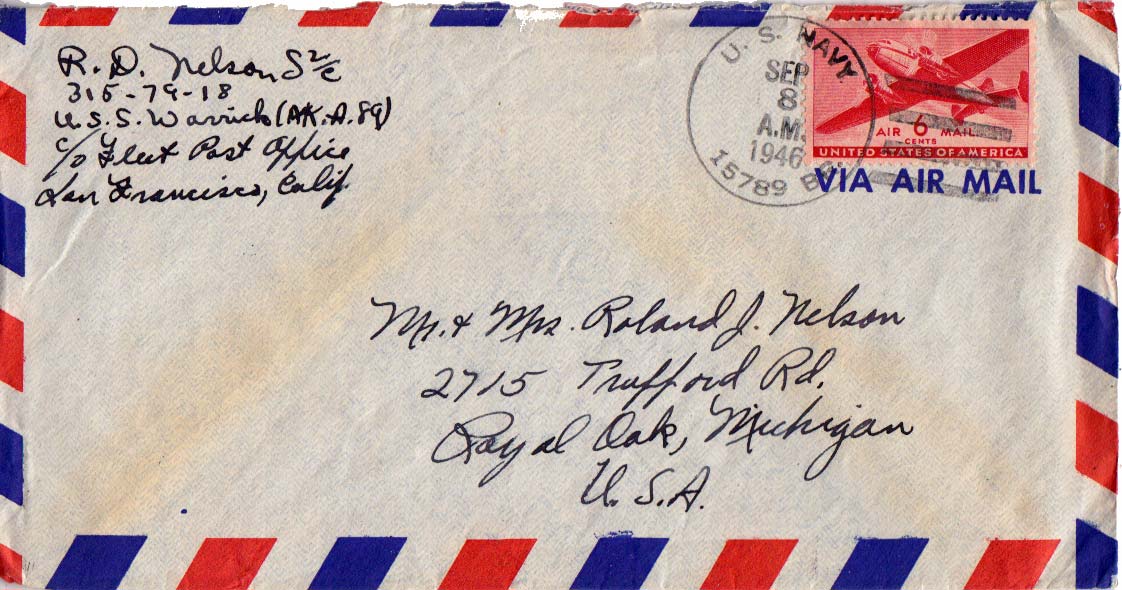 R. D. Nelson S2/c
315-79-18
U.S.S. Warrick (AK.A. 89)
c/o Fleet Post Office
San Francisco, Calif.
U. S. NAVY
SEP
8
A.M.
1946
15789
AIR 6 MAIL
CENTS
UNITED STATES OF AMERICA
VIA AIR MAIL
Mr. & Mrs. Roland J. Nelson
2715 Trafford Rd.
Royal Oak, Michigan
U.S.A.